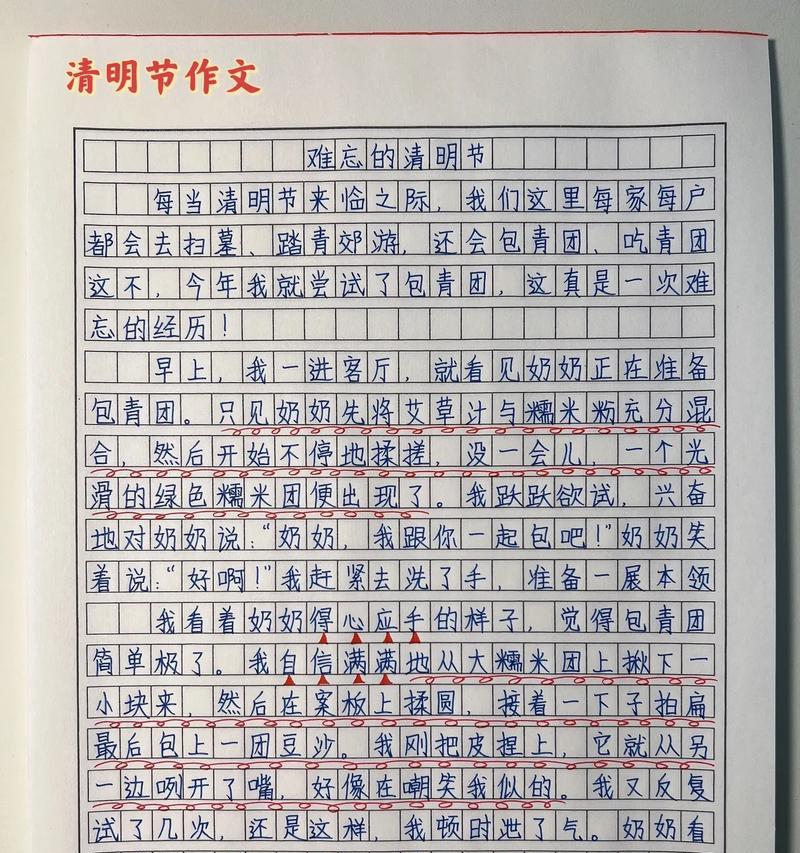 清明节作文
难忘的清明节
每当清明节来临之际，我们这里每家每户
都会去扫墓、踏青郊游，还会包青团、吃青团
这不，今年我就尝试了包青团，这真是一次难
忘的经历！
早上，我一进客厅，就看见奶奶正在准备
包青团。只见奶奶先将艾草汁与糯米粉充分混
合，然后开始不停地揉搓，没一会儿，一个光
滑的绿色糯米团便出现了。我跃跃欲试，兴奋
地对奶奶说：“奶奶，我跟你一起包吧！”奶奶笑
着说：“好啊！”我赶紧去洗了手，准备一展本领
我看着奶奶得心应手的样子，觉得包青团
简单极了。我自信满满地从大糯米团上揪下一
小块来，然后在案板上揉圆，接着一下子拍扁
最后包上一团豆沙。我刚把皮捏上，它就从另
一边咧开了嘴，好像在嘲笑我似的。我又反复
试了几次，还是这样，我顿时泄了气。奶奶看